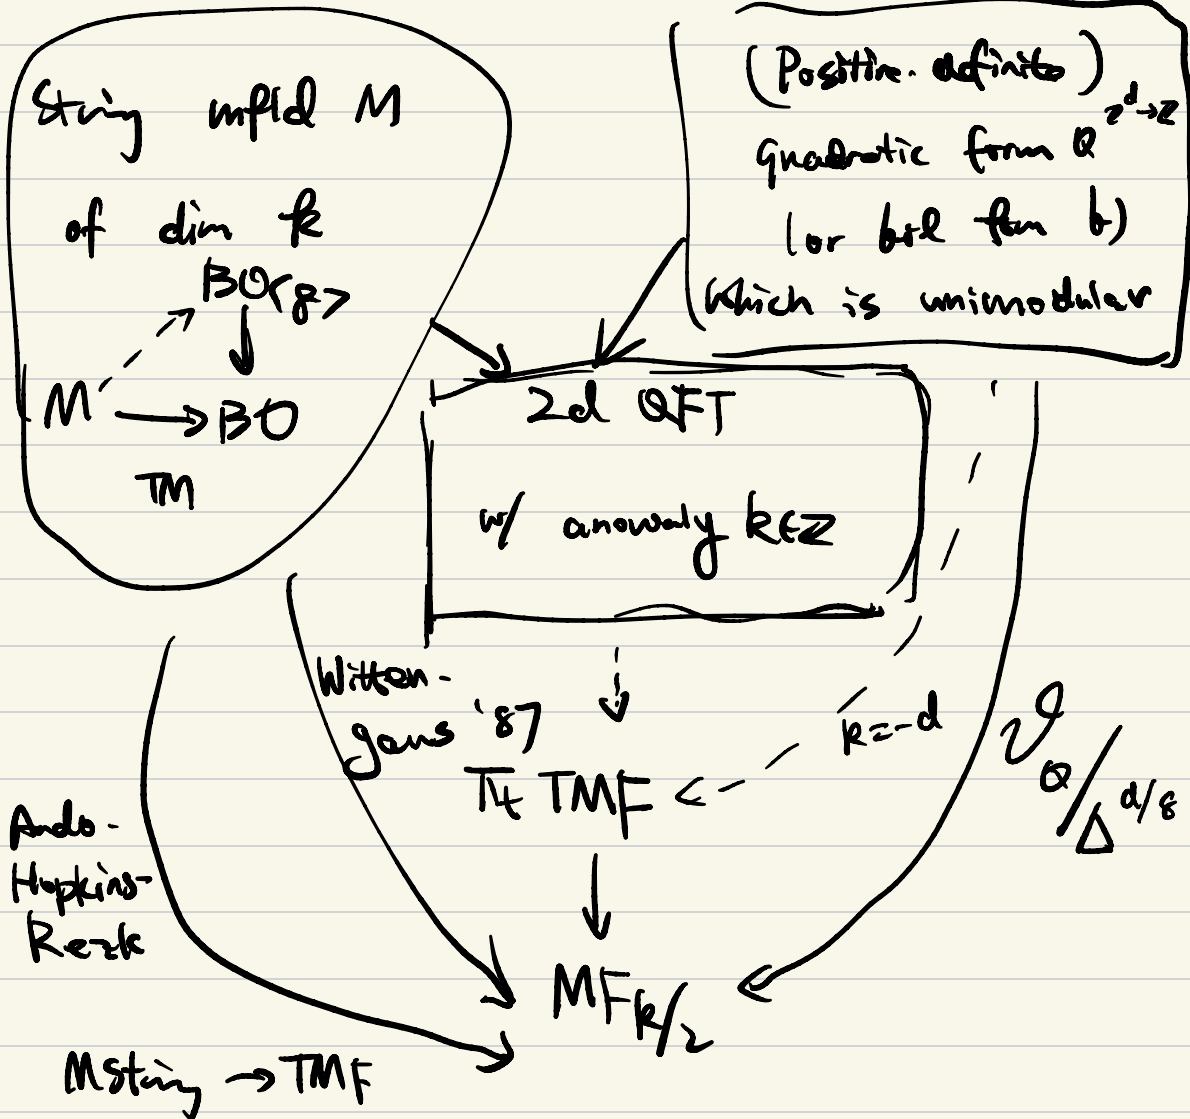 String mfld M
of dim k
BO<8>
M → BO
TM
(Positive-definite)
Z^d→Z
quadratic form Q
(or bil form b)
which is unimodular
2d QFT
w/ anomaly k∈Z
Witten-
genus '87
k=-d
π_k TMF
ϑ_Q/Δ^{d/8}
Ando-
Hopkins-
Rezk
MF_{k/2}
MString → TMF